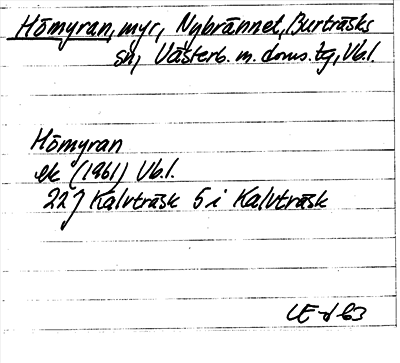 Hömyran, myr, Nybrännet, Burträsks
sn, Västerb. m. doms. tg, Vb.l.
Hömyran
ek (1961) Vb.l.
22J Kalvträsk 5 i Kalvträsk